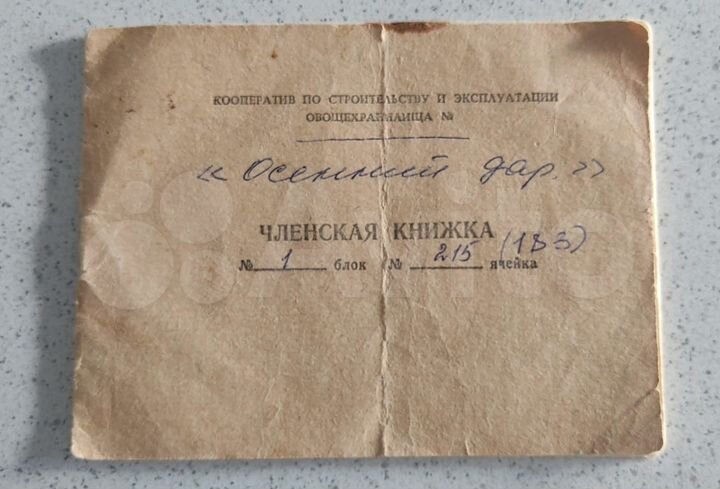 КООПЕРАТИВ ПО СТРОИТЕЛЬСТВУ И ЭКСПЛУАТАЦИИ
ОВОЩЕХРАНИЛИЩА №
« Осенний дар. »
ЧЛЕНСКАЯ КНИЖКА
№ 1 блок № 215 ячейка (183)
Avito